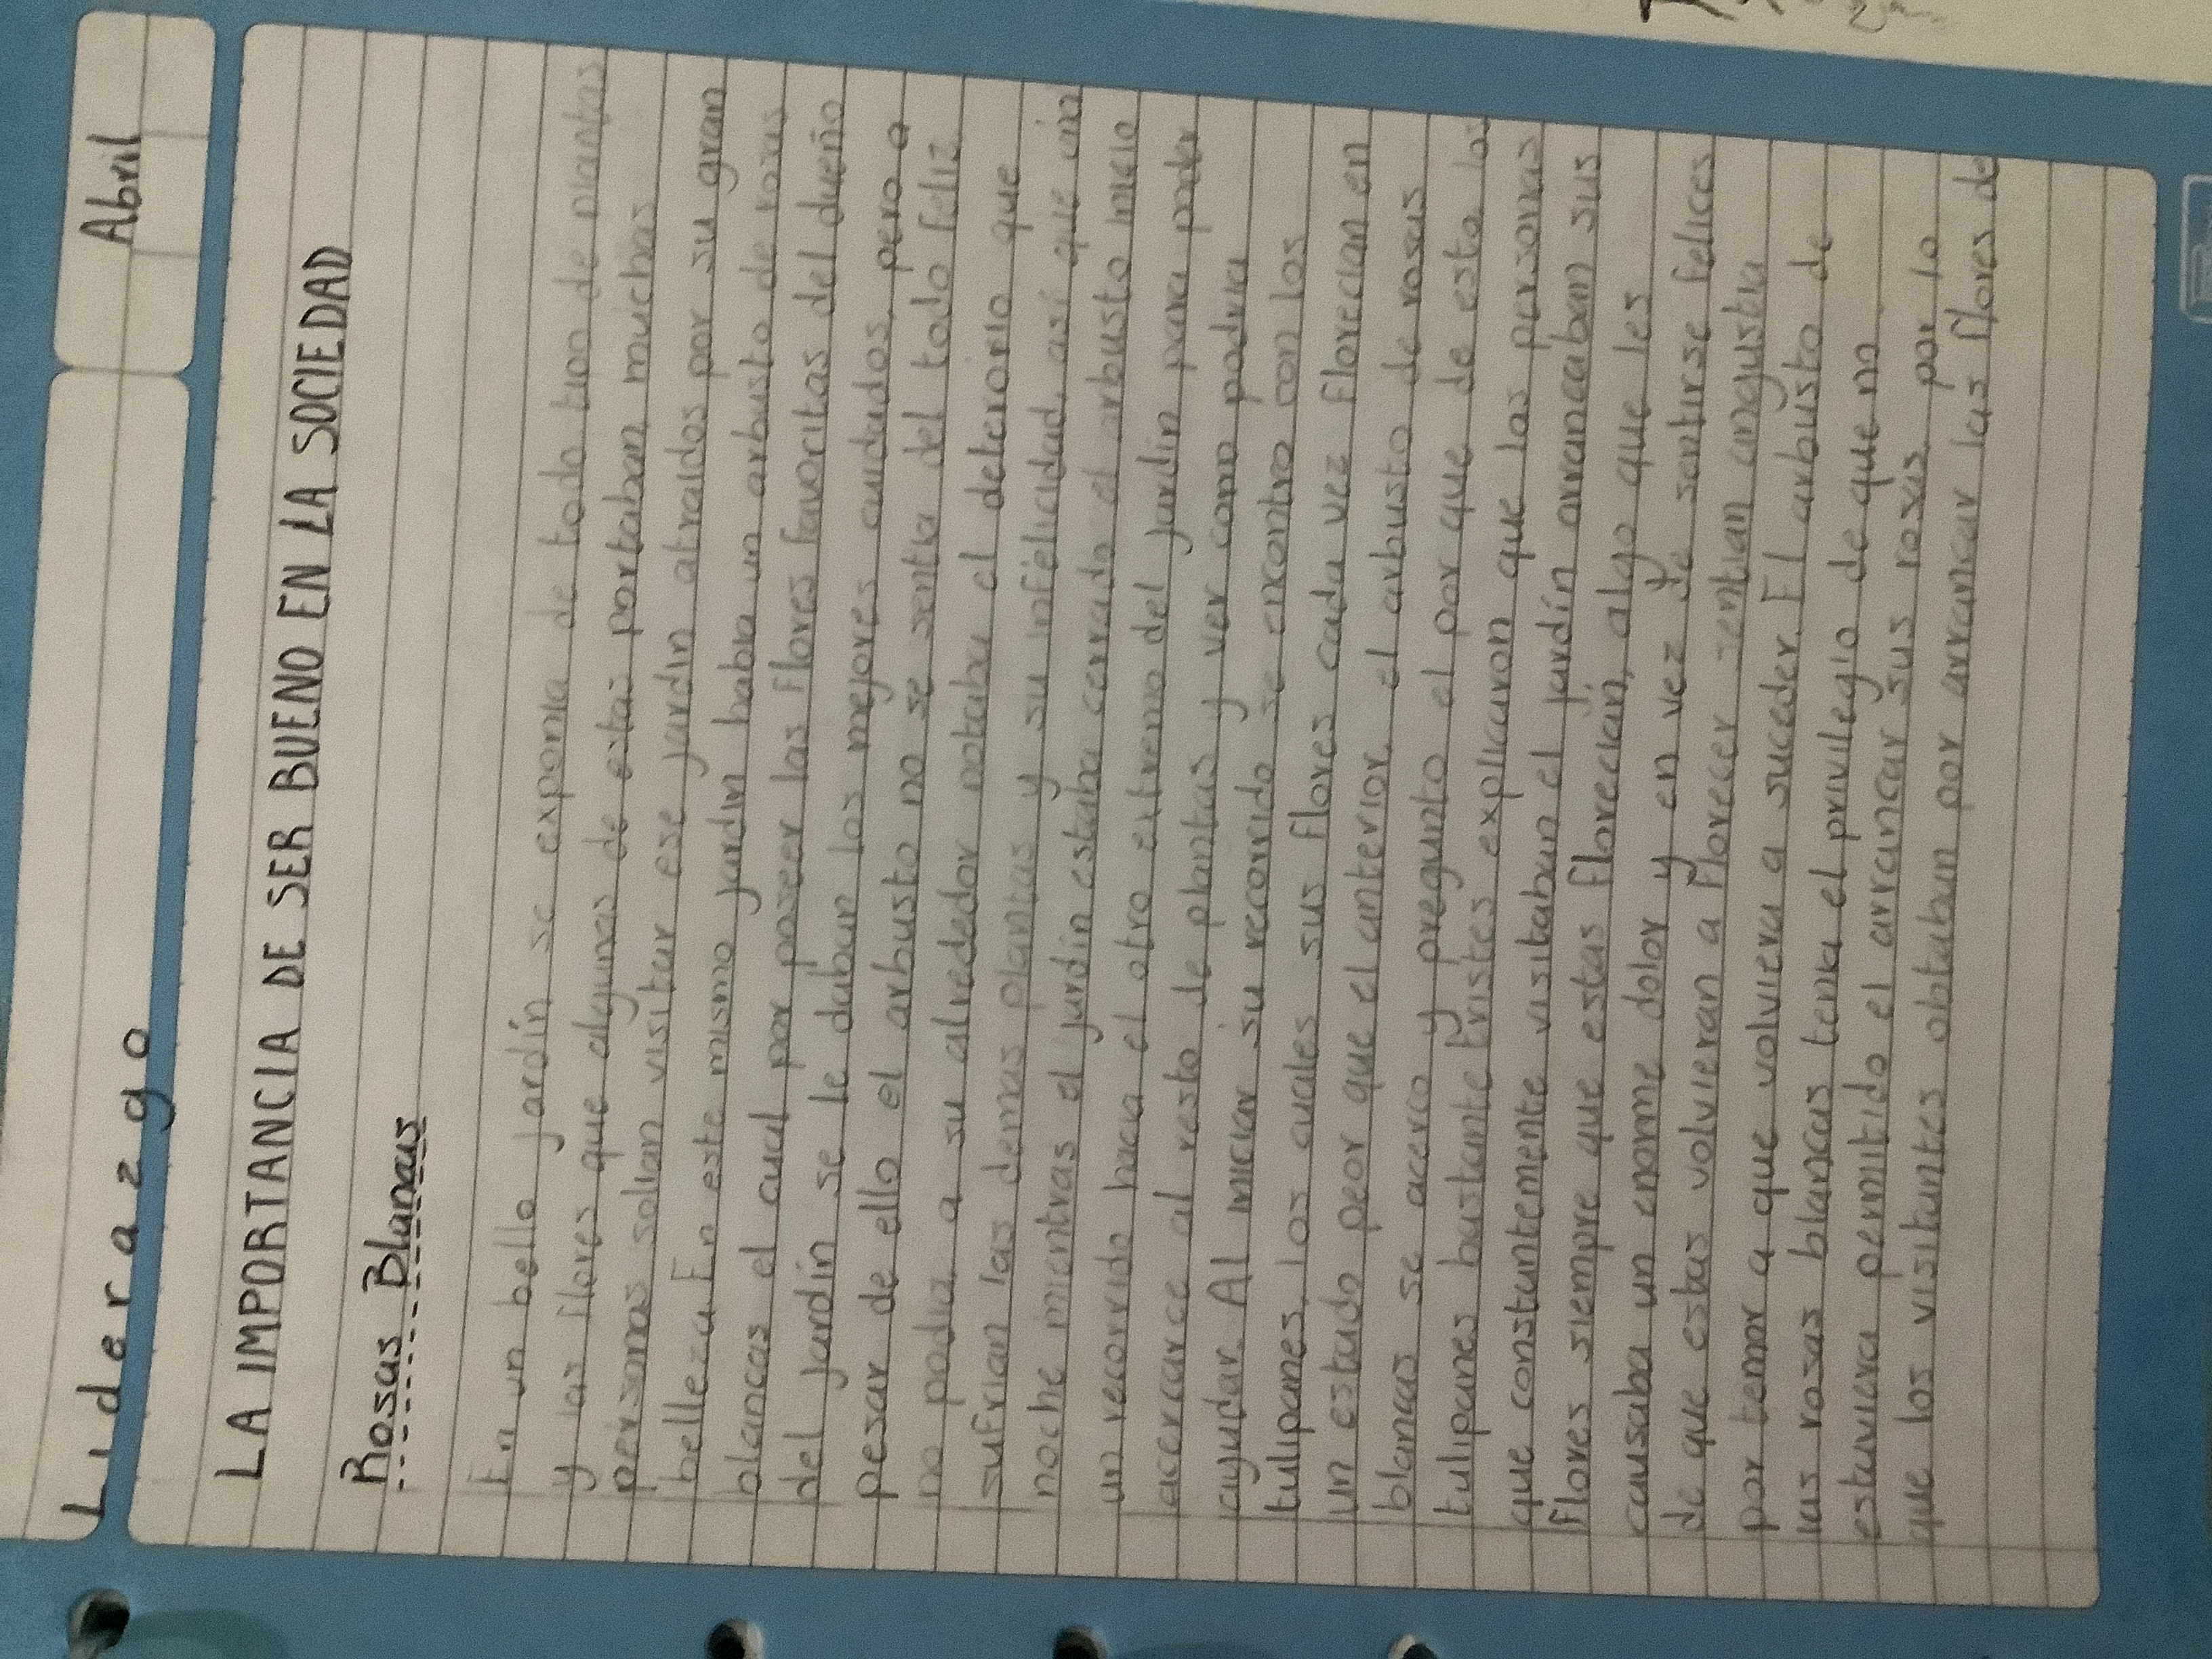 Liderazgo
Abril
LA IMPORTANCIA DE SER BUENO EN LA SOCIEDAD
Rosas Blancas
En un bello jardín se exponia de todo tipo de plantas
y las flores que algunas de estas portaban muchas
personas solian visitar ese jardin atraidos por su gran
belleza. En este mismo jardin habia un arbusto de rosas
blancas el cual por poseer las flores favoritas del dueño
del jardín se le daban los mejores cuidados, pero a
pesar de ello el arbusto no se sentia del todo feliz
no podia, a su alrededor notaba el deterioro que
sufrian las demas plantas y su infelicidad, así que una
noche mientras el jardín estaba cerrado el arbusto inicio
un recorrido hacia el otro extremo del jardin para poder
acercarce al resto de plantas y ver como podria
ayudar. Al iniciar su recorrido se encontro con los
tulipanes, los cuales sus flores cada vez florecian en
un estado peor que el anterior, el arbusto de rosas
blancas se acerco y pregunto el por que de esto, los
tulipanes bastante tristes explicaron que las personas
que constantemente visitaban el jardín arrancaban sus
flores siempre que estas florecian, algo que les
causaba un enorme dolor y en vez de sentirse felices
de que estas volvieran a florecer sentian angustia
por temor a que volviera a suceder. El arbusto de
las rosas blancas tenia el privilegio de que no
estuviera permitido el arrancar sus rosas, por lo
que los visitantes obtaban por arrancar las flores de